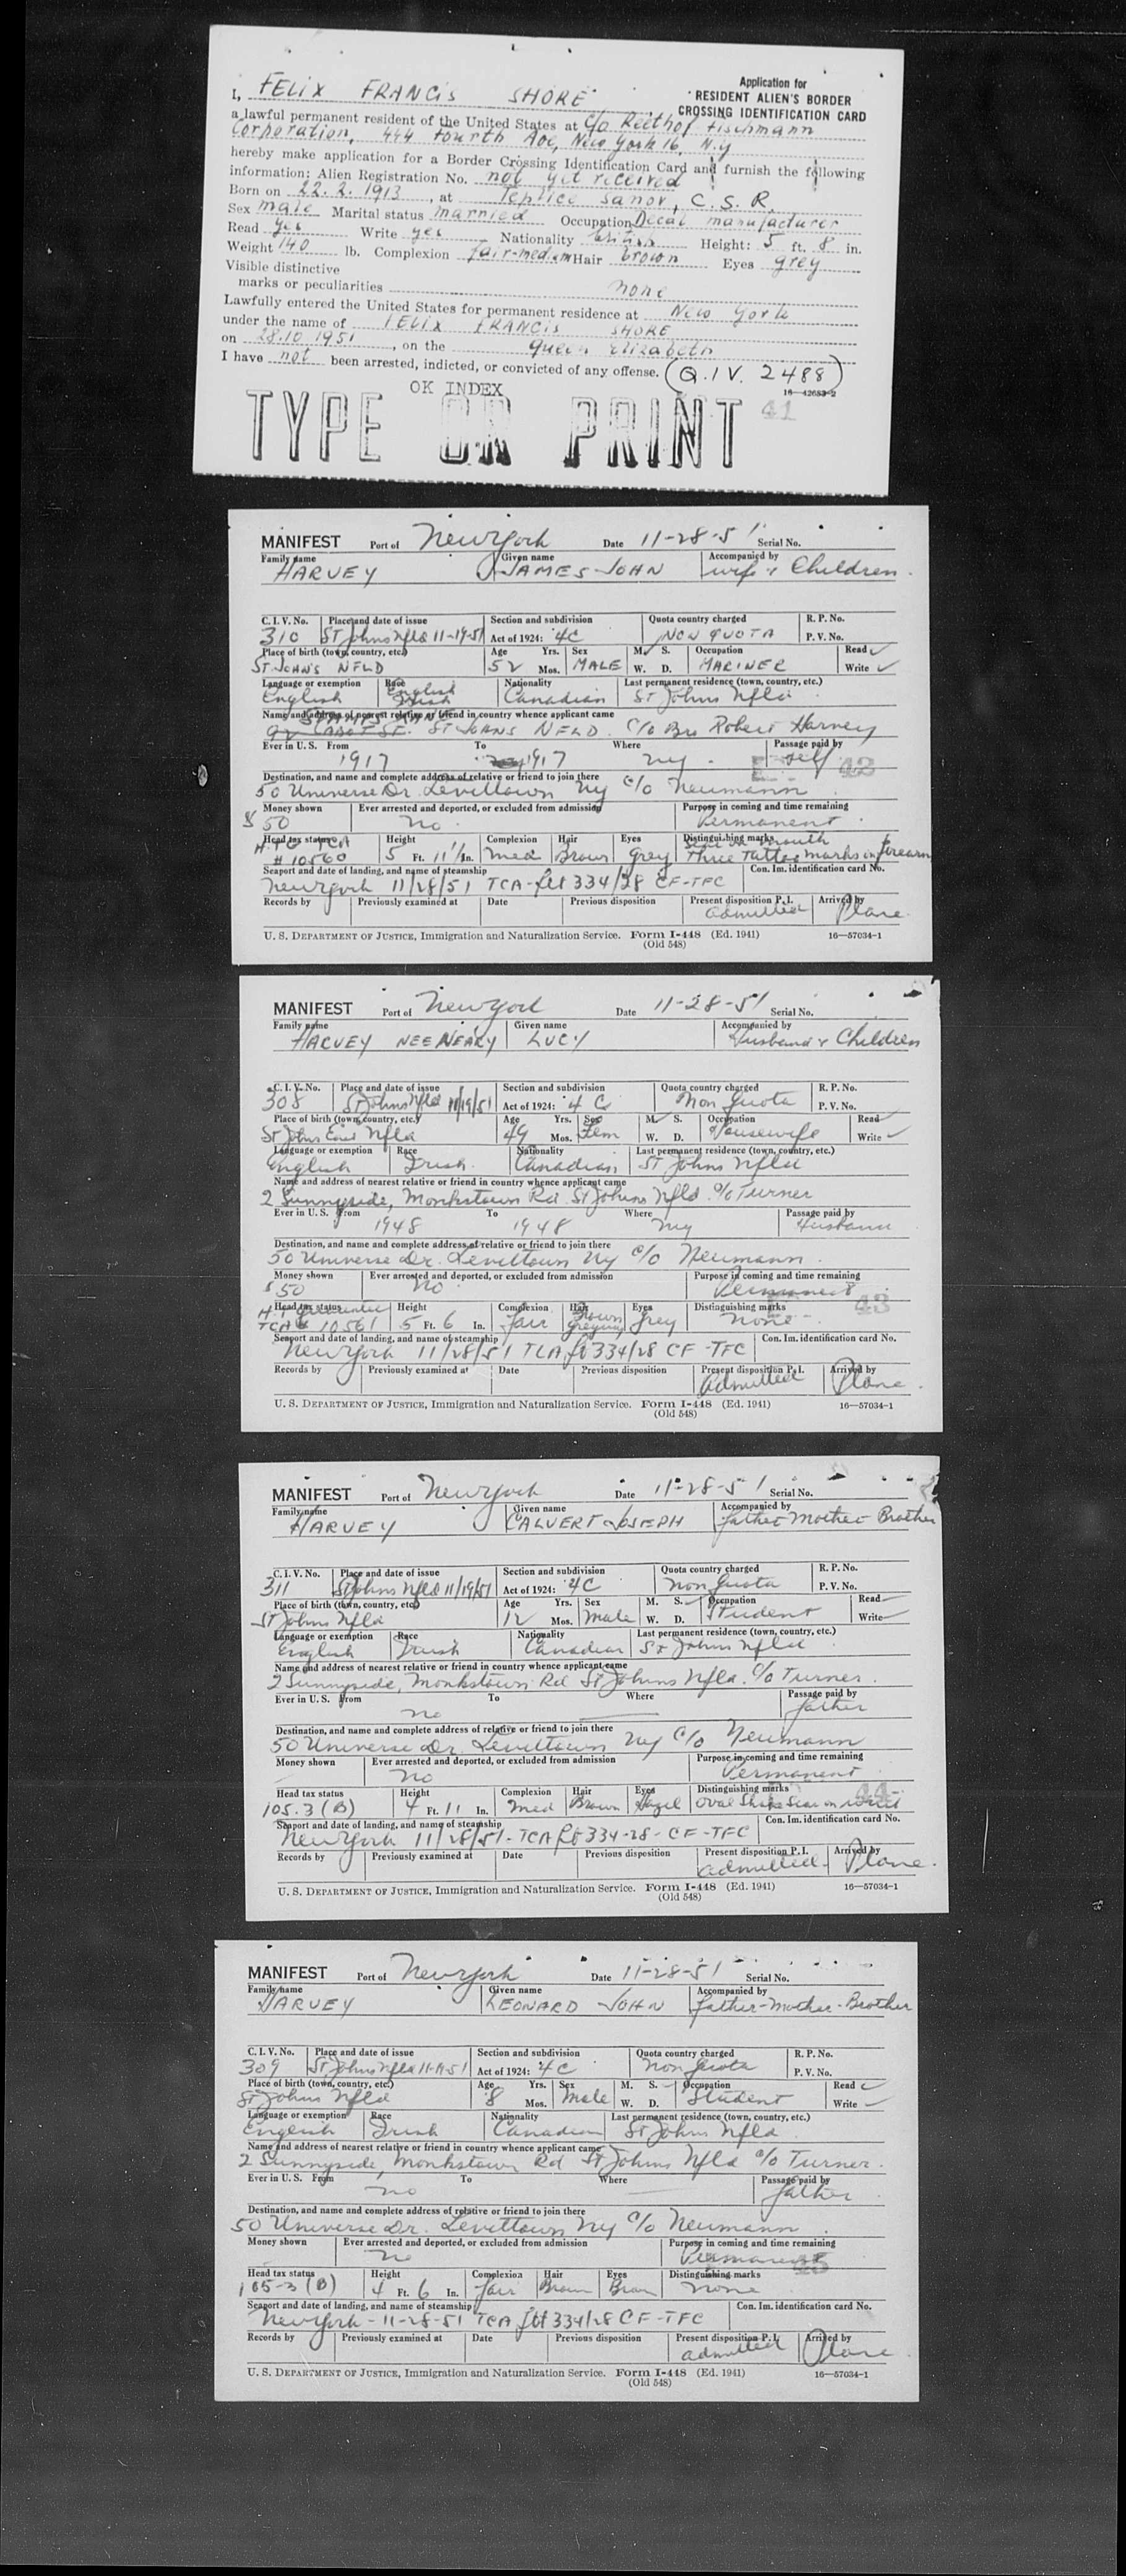 Application for
RESIDENT ALIEN'S BORDER
CROSSING IDENTIFICATION CARD
I, FELIX FRANCIS SHORE
a lawful permanent resident of the United States at c/o Fischmann
Corporation, 444 Fourth Ave, New York 16, N.Y
hereby make application for a Border Crossing Identification Card and furnish the following
information: Alien Registration No. not yet received
Born on 22. 2. 1913, at Teplice Sanov, C. S. R.
Sex male Marital status married Occupation Decal manufacturer
Read yes Write yes Nationality british Height: 5 ft. 8 in.
Weight 140 lb. Complexion fair-medium Hair brown Eyes grey
Visible distinctive
marks or peculiarities none
Lawfully entered the United States for permanent residence at New York
under the name of FELIX FRANCIS SHORE
on 28.10 1951, on the Queen Elizabeth
I have not been arrested, indicted, or convicted of any offense. (Q.I V. 2488)
OK INDEX 16—42653-2
TYPE OR PRINT 41
MANIFEST Port of New York Date 11-28-51 Serial No.
Family name Given name Accompanied by
HARVEY JAMES JOHN wife & Children
C. I. V. No. Place and date of issue Section and subdivision Quota country charged R. P. No.
310 St Johns Nfld 11-19-51 Act of 1924: 4C NON QUOTA P. V. No.
Place of birth (town, country, etc.) Age Yrs. Sex M. S. Occupation Read ✓
ST. JOHN'S NFLD 52 Mos. MALE W. D. MARINER Write ✓
Language or exemption Race Nationality Last permanent residence (town, country, etc.)
English English Irish Canadian St Johns Nfld
Name and address of nearest relative or friend in country whence applicant came
CABOT ST. ST JOHNS NFLD. c/o Bro Robert Harvey
Ever in U. S. From To Where Passage paid by
1917 1917 NY. self 42
Destination, and name and complete address of relative or friend to join there
50 Universe Dr. Levittown NY c/o Neumann
Money shown Ever arrested and deported, or excluded from admission Purpose in coming and time remaining
$ 50 no. Permanent
Head tax status Height Complexion Hair Eyes Distinguishing marks
# 10560 5 Ft. 11 In. med Brown Grey Three Tattoo marks on forearm
Seaport and date of landing, and name of steamship Con. Im. identification card No.
New York 11/28/51 TCA-flt 334/28 CF-TFC
Records by Previously examined at Date Previous disposition Present disposition P. I. Arrived by
admitted Plane
U. S. DEPARTMENT OF JUSTICE, Immigration and Naturalization Service. Form I-448 (Ed. 1941) 16—57034-1
(Old 548)
MANIFEST Port of New York Date 11-28-51 Serial No.
Family name Given name Accompanied by
HARVEY NEE NEARY LUCY Husband & Children
C. I. V. No. Place and date of issue Section and subdivision Quota country charged R. P. No.
308 St Johns Nfld 11/19/51 Act of 1924: 4 C Non Quota P. V. No.
Place of birth (town, country, etc.) Age Yrs. Sex M. S. Occupation Read ✓
St Johns East Nfld 49 Mos. Fem W. D. Housewife Write ✓
Language or exemption Race Nationality Last permanent residence (town, country, etc.)
English Irish Canadian St Johns Nfld
Name and address of nearest relative or friend in country whence applicant came
2 Sunnyside, Monkstown Rd St Johns Nfld. c/o Turner
Ever in U. S. From To Where Passage paid by
1948 1948 NY Husband
Destination, and name and complete address of relative or friend to join there
50 Universe Dr. Levittown NY c/o Neumann
Money shown Ever arrested and deported, or excluded from admission Purpose in coming and time remaining
$ 50 no Permanent
Head tax status Height Complexion Hair Eyes Distinguishing marks 43
TCA # 10561 5 Ft. 6 In. Fair Brown Greying Grey none
Seaport and date of landing, and name of steamship Con. Im. identification card No.
New York 11/28/51 TCA flt 334/28 CF-TFC
Records by Previously examined at Date Previous disposition Present disposition P. I. Arrived by
admitted Plane
U. S. DEPARTMENT OF JUSTICE, Immigration and Naturalization Service. Form I-448 (Ed. 1941) 16—57034-1
(Old 548)
MANIFEST Port of New York Date 11-28-51 Serial No.
Family name Given name Accompanied by
HARVEY CALVERT JOSEPH father Mother Brother
C. I. V. No. Place and date of issue Section and subdivision Quota country charged R. P. No.
311 St Johns Nfld 11/19/51 Act of 1924: 4C Non Quota P. V. No.
Place of birth (town, country, etc.) Age Yrs. Sex M. S. Occupation Read
St Johns Nfld 12 Mos. Male W. D. Student Write
Language or exemption Race Nationality Last permanent residence (town, country, etc.)
English Irish Canadian St Johns Nfld
Name and address of nearest relative or friend in country whence applicant came
2 Sunnyside, Monkstown Rd St Johns Nfld. c/o Turner
Ever in U. S. From To Where Passage paid by
no father
Destination, and name and complete address of relative or friend to join there
50 Universe Dr Levittown NY c/o Neumann
Money shown Ever arrested and deported, or excluded from admission Purpose in coming and time remaining
no Permanent
Head tax status Height Complexion Hair Eyes Distinguishing marks 44
105.3 (B) 4 Ft. 11 In. Med Brown Hazel Oval Shape Scar on
Seaport and date of landing, and name of steamship Con. Im. identification card No.
New York 11/28/51-TCA flt 334-28-CF-TFC
Records by Previously examined at Date Previous disposition Present disposition P. I. Arrived by
admitted Plane
U. S. DEPARTMENT OF JUSTICE, Immigration and Naturalization Service. Form I-448 (Ed. 1941) 16—57034-1
(Old 548)
MANIFEST Port of New York Date 11-28-51 Serial No.
Family name Given name Accompanied by
HARVEY LEONARD JOHN father-Mother-Brother
C. I. V. No. Place and date of issue Section and subdivision Quota country charged R. P. No.
309 St Johns Nfld 11-19-51 Act of 1924: 4C Non Quota P. V. No.
Place of birth (town, country, etc.) Age Yrs. Sex M. S. Occupation Read ✓
St Johns Nfld 8 Mos. Male W. D. Student Write ✓
Language or exemption Race Nationality Last permanent residence (town, country, etc.)
English Irish Canadian St Johns Nfld
Name and address of nearest relative or friend in country whence applicant came
2 Sunnyside, Monkstown Rd St Johns Nfld c/o Turner
Ever in U. S. From To Where Passage paid by
no father
Destination, and name and complete address of relative or friend to join there
50 Universe Dr. Levittown NY c/o Neumann
Money shown Ever arrested and deported, or excluded from admission Purpose in coming and time remaining
no Permanent
Head tax status Height Complexion Hair Eyes Distinguishing marks
105-3 (B) 4 Ft. 6 In. Fair Brown Brown none
Seaport and date of landing, and name of steamship Con. Im. identification card No.
New York-11-28-51 TCA flt 334/28 CF-TFC
Records by Previously examined at Date Previous disposition Present disposition P. I. Arrived by
admitted Plane
U. S. DEPARTMENT OF JUSTICE, Immigration and Naturalization Service. Form I-448 (Ed. 1941) 16—57034-1
(Old 548)